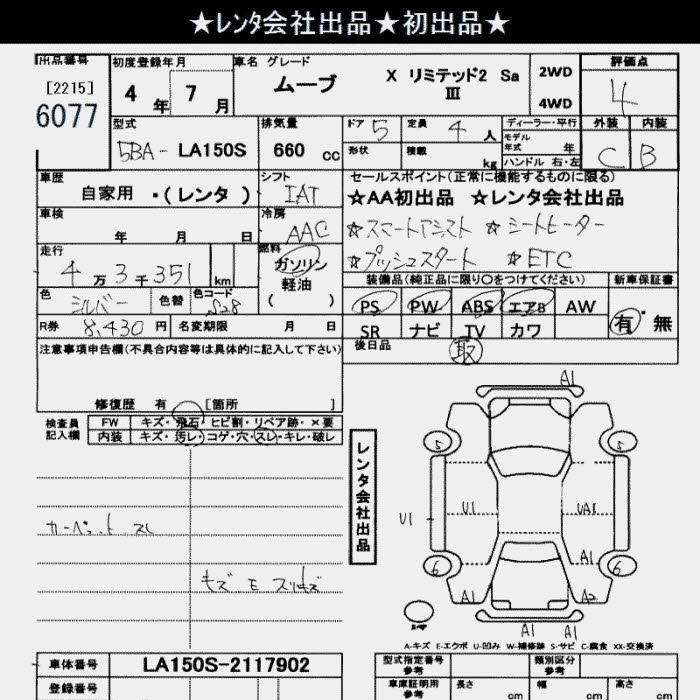 ★レンタ会社出品★初出品★
出品番号 初度登録年月 車名 グレード 評価点
[2215] 6077
4年 7月
ムーブ X リミテッド2 Sa Ⅲ
2WD
4WD
4
型式 排気量 ドア 5 定員 4人 ディーラー・平行 外装 内装
5BA- LA150S 660cc 形状 積載 kg モデル年式 年 C B
ハンドル 右・左
車歴 シフト セールスポイント(正常に機能するものに限る)
自家用 ・(レンタ ) IAT ★AA初出品 ★レンタ会社出品
車検 冷房 ☆スマートアシスト ☆シートヒーター
年 月 日 AAC ☆プッシュスタート ☆ETC
走行 燃料
4万3千351 km ガソリン
軽油
( )
装備品(純正品に限り○をつけてください) 新車保証書
色 シルバー 色替 色コード S28 PS PW ABS エアB AW 有・無
R券 8,430円 名変期限 月 日 SR ナビ TV カワ
注意事項申告欄(不具合内容等は具体的に記入して下さい) 後日品 取
修復歴 有 [箇所 ]
検査員記入欄 FW キズ・飛石・ヒビ割・リペア跡・×要
内装 キズ・汚レ・コゲ・穴・スレ・キレ・破レ
レンタ会社出品
カーペット スレ
キズ E スリキズ
A1
5 5
U1 U1 UA1
A1
6 6
A1 A2
A1 A1
A-キズ E-エクボ U-凹み W-補修跡 S-サビ C-腐食 XX-交換済
車体番号 LA150S-2117902 型式指定番号 参考 類別区分 参考
登録番号 車庫証明用 参考 長さ cm 幅 cm 高さ cm